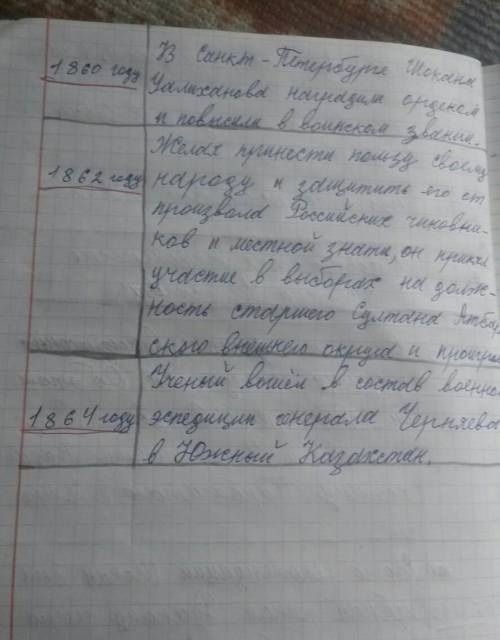 1860 году
В Санкт-Петербурге Шокана
Уалиханова наградили орденом
и повысили в воинском звании.
1862 году
Желая принести пользу своему
народу и защитить его от
произвола Российских чиновни-
ков и местной знати, он принял
участие в выборах на долж-
ность старшего Султана Атба
ского внешнего округа и проиграл
1864 году
Ученый вошёл в состав военной
эспедиции генерала Черняева
в Южный Казахстан.